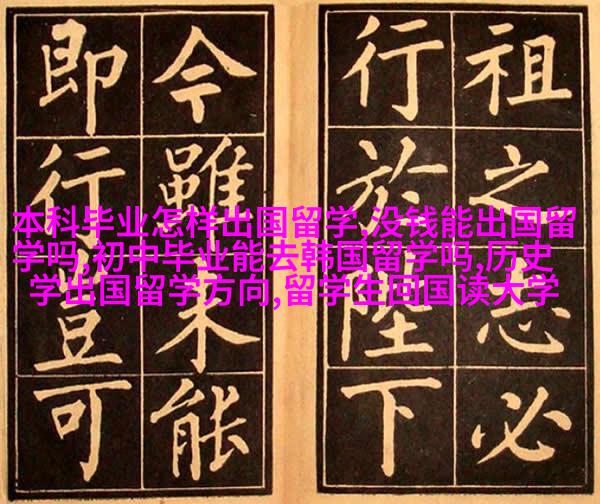 祖之志必
行於陛下
今雖未能
即行豈可
本科毕业怎样出国留学,没钱能出国留
学吗,初中毕业能去韩国留学吗,历史
学出国留学方向,留学生回国读大学